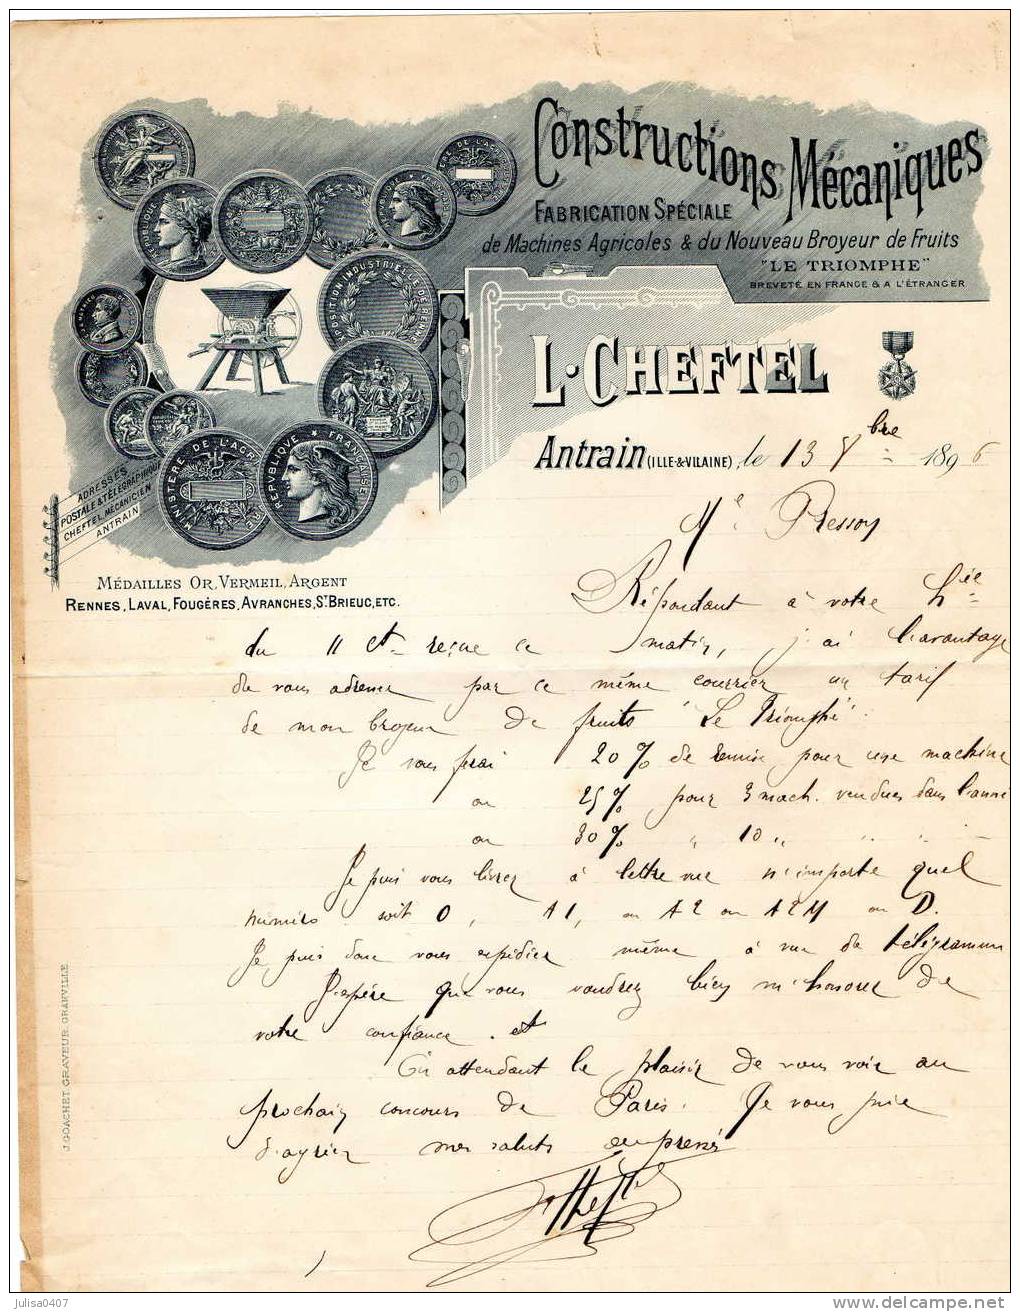 Constructions Mécaniques
FABRICATION SPÉCIALE
de Machines Agricoles & du Nouveau Broyeur de Fruits
"LE TRIOMPHE"
BREVETÉ EN FRANCE & A L'ÉTRANGER
L. CHEFTEL
Antrain (ILLE-&-VILAINE), le 13 8bre 1896
EXPOSITION INDUSTRIELLE DE RENNES
MINISTÈRE DE L'AGRICULTURE
REPVBLIQVE ★ FRANÇAISE
ADRESSES
POSTALE & TÉLÉGRAPHIQUE
CHEFTEL MÉCANICIEN
ANTRAIN
MÉDAILLES OR, VERMEIL, ARGENT
RENNES, LAVAL, FOUGÈRES, AVRANCHES, ST BRIEUC, ETC.
Répondant à votre hrée
du 11 ct reçue ce matin, j'ai l'avantage
de vous adresser par ce même courrier un tarif
de mon broyeur de fruits "Le Triomphe".
Je vous ferai 20% de remise pour une machine
ou 25% pour 3 mach. vendues dans l'année
ou 30% " 10 " " " "
Je puis vous livrer à lettre vue n'importe quel
numéro soit 0, A1, ou A2 ou A2M ou D.
Je puis donc vous expédier même à vue de télégramme
J'espère que vous voudrez bien m'honorer de
votre confiance. et
En attendant le plaisir de vous voir au
prochain concours de Paris. Je vous prie
d'agréer mes saluts empressés
LCheftel
J. GOACHET GRAVEUR. GRANVILLE
julisa0407
delcampe.net